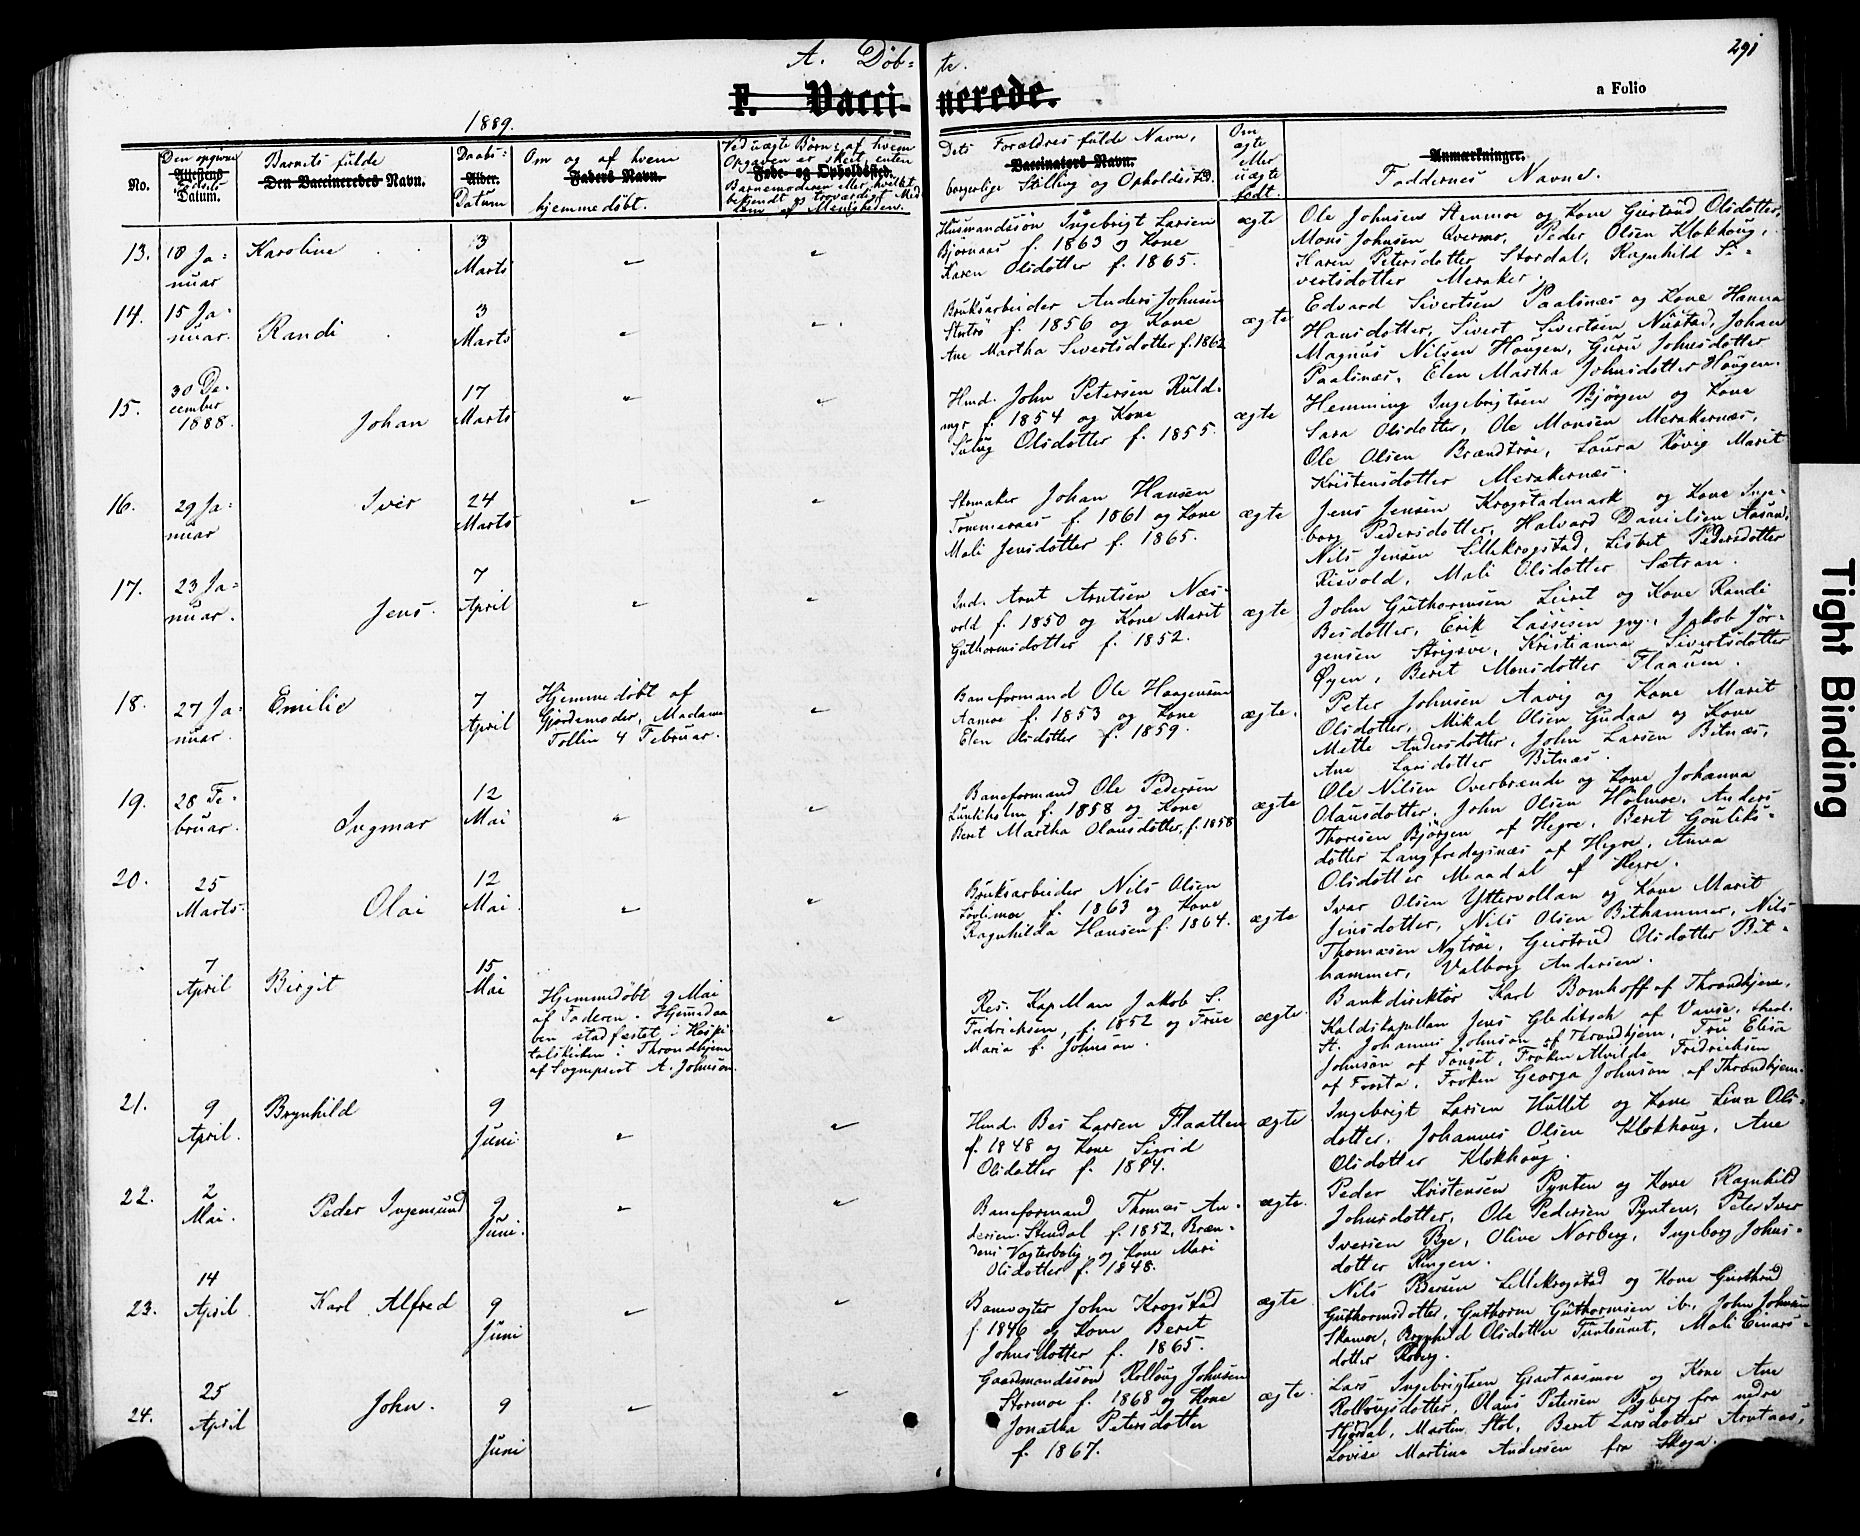 A. Døb-te.
291
F. Vaccinerede.
a Folio
1889.
No.
Den opgivne
Attestens
Fødsels
Datum.
Barnets fulde
Den Vaccineredes Navn.
Daabs-
Alder.
Datum
Om og af hvem
Faders Navn.
hjemmedøbt.
Ved uægte Børn: af hvem
Opgaven er skeet, enten
Føde- og Opholdssted.
Barnemoderen eller hvilket
bekjendt og troværdigt Med
lem af Menigheden.
Dets Forældres fulde Navn,
Vaccinators Navn.
borgerlige Stilling og Opholdssted.
Om
ægte
eller
uægte
født.
Anmærkninger.
Faddernes Navne.
13.
18 Ja-
nuar
Karoline
3
Marts
Husmandssøn Ingebrigt Larsen
Bjørnaas f. 1863 og Kone
Karen Olsdotter f. 1865.
ægte
Ole Johnsen Stenmoe og Kone Gjertrud Olsdotter,
Mons Johnsen Overmo, Peder Olsen Klokhoug,
Karen Petersdotter Stordal, Ragnhild Si-
vertsdotter Meraker.
14.
15 Ja-
nuar.
Randi
3
Marts
Bruksarbeider Anders Johnsen
f. 1856 og Kone
Ane Martha Sivertsdotter f. 1862
ægte
Edvard Sivertsen Paalsnæs og Kone Hanna
Hansdotter, Sivert Sivertsen Nustad, Johan
Magnus Nilsen Hougen, Guru Johnsdotter
Paalsnæs, Elen Martha Johnsdotter Hougen.
15.
30 De-
cember
1888.
Johan
17
Marts
Hmd. John Petersen Kuld-
f. 1854 og Kone
Solug Olsdotter f. 1855.
ægte
Hemming Ingebrigtsen Bjørgen og Kone
Sara Olsdotter, Ole Monsen Merakernæs,
Ole Olsen Brændtrøe, Laura Køvig Marit
Kristensdotter Merakernæs.
16.
29 Ja-
nuar
Iver
24
Marts
Skomaker Johan Hansen
Tømmeraas f. 1861 og Kone
Mali Jensdotter f. 1865.
ægte
Jens Jensen Krogstadmark og Kone Inge-
borg Pedersdotter, Halvard Danielsen Aasan,
Nils Jensen Lillekrogstad, Lisbet Pedersdotter
Risvold, Mali Olsdotter Sætran.
17.
23 Ja-
nuar.
Jens.
7
April
Ind. Arnt Arntsen Næs-
vold f. 1850 og Kone Marit
Guthormsdotter f. 1852.
ægte
John Guthormsen Leiret og Kone Randi
Besdotter, Erik Lassesen gsg., Jakob Jør-
gensen Strigsve, Kristianna Sivertsdotter
Øyen, Beret Monsdotter Flaaum.
18.
27 Ja-
nuar.
Emilie
7
April
Hjemmedøbt af
Gjordemoder, Madame
Tollin 4 Februar.
Baneformand Ole Haagensen
Aamoe f. 1853 og Kone
Elen Olsdotter f. 1859.
ægte.
Peter Johnsen Aavig og Kone Marit
Olsdotter, Mikal Olsen Gudaa og Kone
Mette Andersdotter, John Larsen Bitnæs,
Ane Larsdotter Bitnæs.
19.
28 Fe-
bruar.
Ingmar
12
Mai
Baneformand Ole Pedersen
Lunkholm f. 1858 og Kone
Beret Martha Olausdotter, f. 1858
ægte
Ole Nilsen Overbrænde og Kone Johanna
Olausdotter, John Olsen Holmoe, Anders
Thoresen Bjørgen af Hegre, Beret Gouliks-
dotter Langfredagsnæs af Hegre, Anna
Olsdotter Meaadal af Hegre.
20.
25
Marts.
Olai
12
Mai.
Bruksarbeider Nils Olsen
f. 1863 og Kone
Ragnhilda Hansen f. 1864.
ægte
Ivar Olsen Yttervollan og Kone Marit
Jensdotter, Nils Olsen Bithammer, Nils
Thomasen Nytrøe, Gjertrud Olsdotter Bit-
hammer, Valborg Andersen.
7
April
Birgit
15
Mai
Hjemmedøbt 9 Mai
af Faderen. Hjemmedaa
ben stadfæstet i Hospi
talskirken i Throndhjem
af Sognepræst A. Johnson.
Res. Kapellan Jakob S.
Fridrichsen, f. 1852 og Frue
Maria f. Johnson.
ægte.
Bankdirektør Karl Bomhoff af Throndhjem,
Kaldskapellan Jens Gleditsch af Vanse, theol.
st. Johannes Johnson af Throndhjem, Fru Elisa
Johnson af Tønset, Frøken Alvilde Fridrichsen
af Frosta, Frøken Georga Johnson af Throndhjem.
21.
9
April.
Brynhild
9
Juni
Hmd. Bes Larsen Flaatten
f. 1848 og Kone Sigrid
Olsdotter f. 1844.
ægte
Ingebrigt Larsen Hullet og Kone Lina Ols-
dotter, Johannes Olsen Klokhoug, Ane
Olsdotter Klokhoug.
22.
2
Mai.
Peder Ingemund
9
Juni.
Baneformand Thomas An-
dersen Stendal f. 1852, Bræn-
dens Vogterbolig, og Kone Mari
Olsdotter f. 1848.
ægte.
Peder Kristensen Pynten og Kone Ragnhild
Johnsdotter, Ole Pedersen Pynten, Peter Iver
Iversen Bye, Olive Norberg, Ingeborg Johns-
dotter Ringen.
23.
14
April
Karl Alfred
9
Juni
Banevogter John Krogstad
f. 1846 og Kone Beret
Johnsdotter f. 1865.
ægte
Nils Pedersen Lillekrogstad og Kone Gjertrud
Guthormsdotter, Guthorm Guthormsen ib., John Johnsen
Skamoe, Brynhild Olsdotter Funtaunet, Mali Einars-
dotter Roberg.
24.
25
April
John.
9
Juni
Gaardmandssøn Rolloug Johnsen
Stormoe f. 1868 og Kone
Jonetha Petersdotter
f. 1867.
ægte.
Lars Ingebrigtsen Gravraasmoe og Kone Ane
Rollougsdotter, Olaus Petersen Byberg fra nedre
Stjørdal, Martin Stol, Beret Larsdotter Arntaas,
Lovise Martina Andersen fra Skoga.
Tight Binding